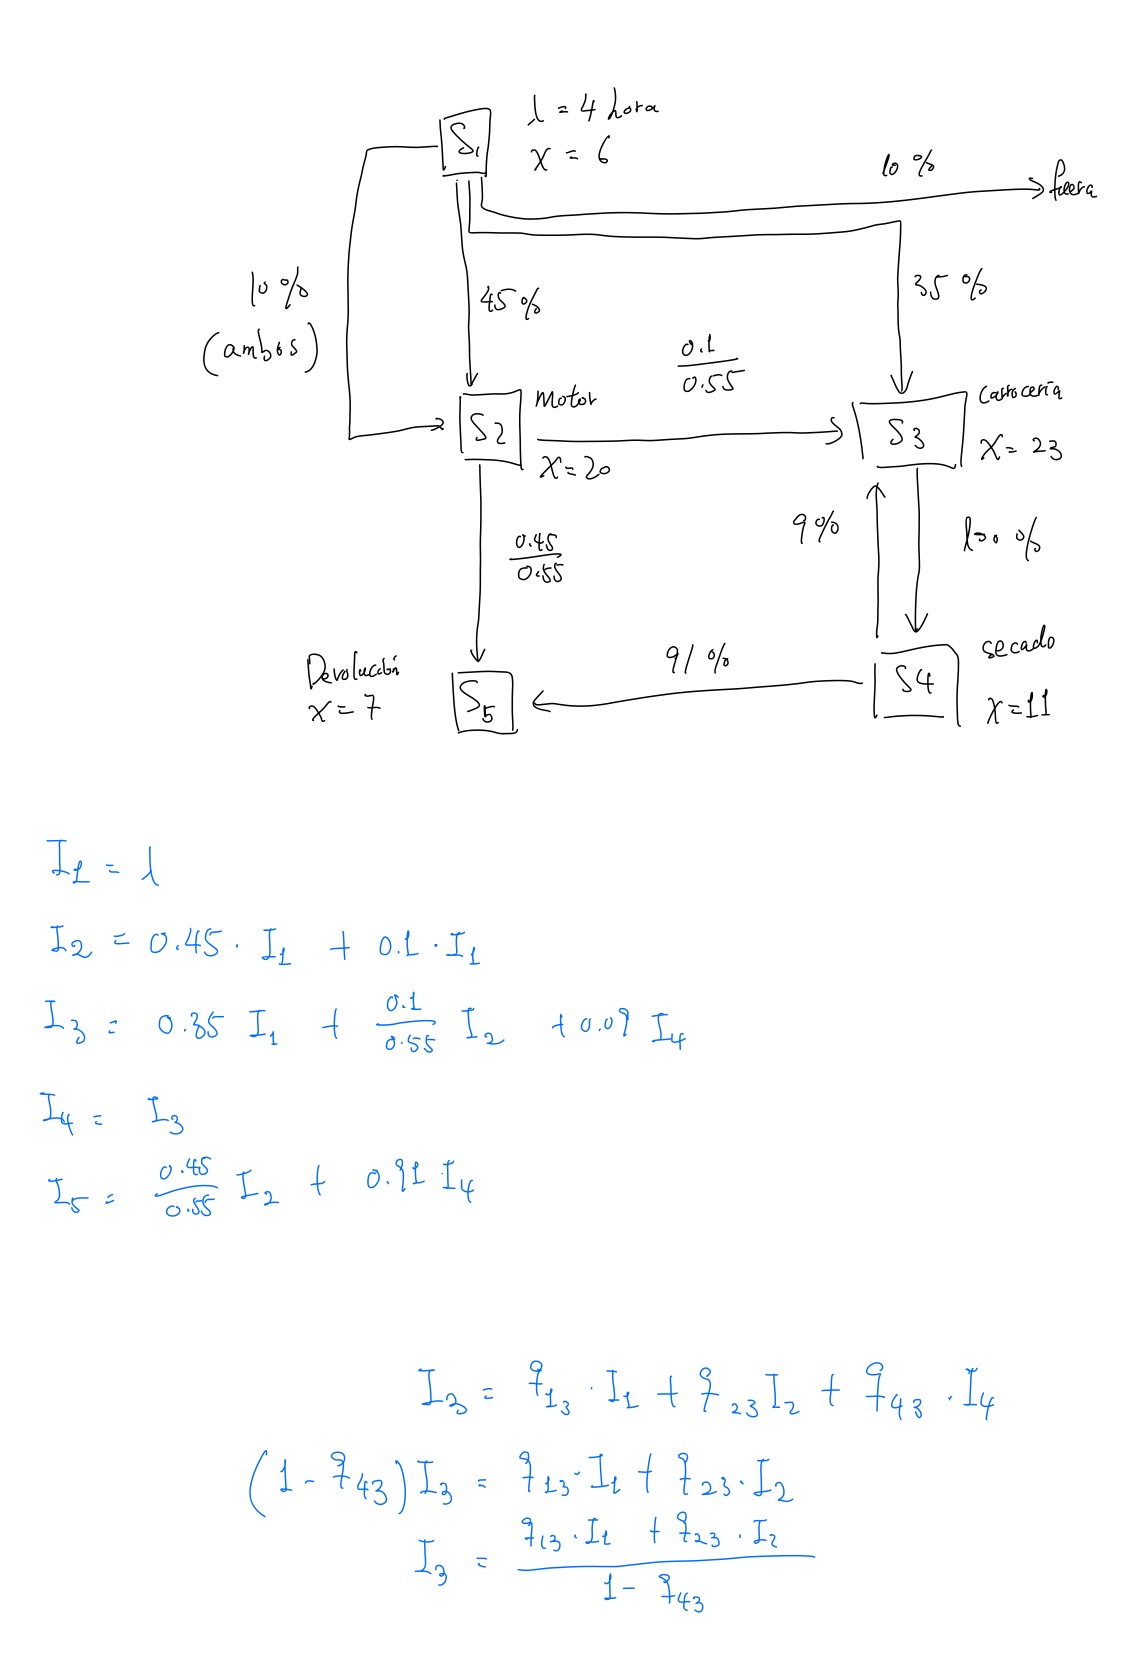 S1
l = 4 hora
x = 6
10 %
fuera
10 %
(ambos)
45 %
35 %
0.1
0.55
S2
Motor
x = 20
S3
Carrocería
x = 23
0.45
0.55
9%
100 %
Devolución
x = 7
S5
91 %
S4
secado
x = 11
I1 = l
I2 = 0.45 · I1 + 0.1 · I1
I3 = 0.35 I1 + 0.1/0.55 I2 + 0.09 I4
I4 = I3
I5 = 0.45/0.55 I2 + 0.91 I4
I3 = q13 · I1 + q23 I2 + q43 · I4
(1 - q43) I3 = q13 · I1 + q23 · I2
I3 = q13 · I1 + q23 · I2
1 - q43